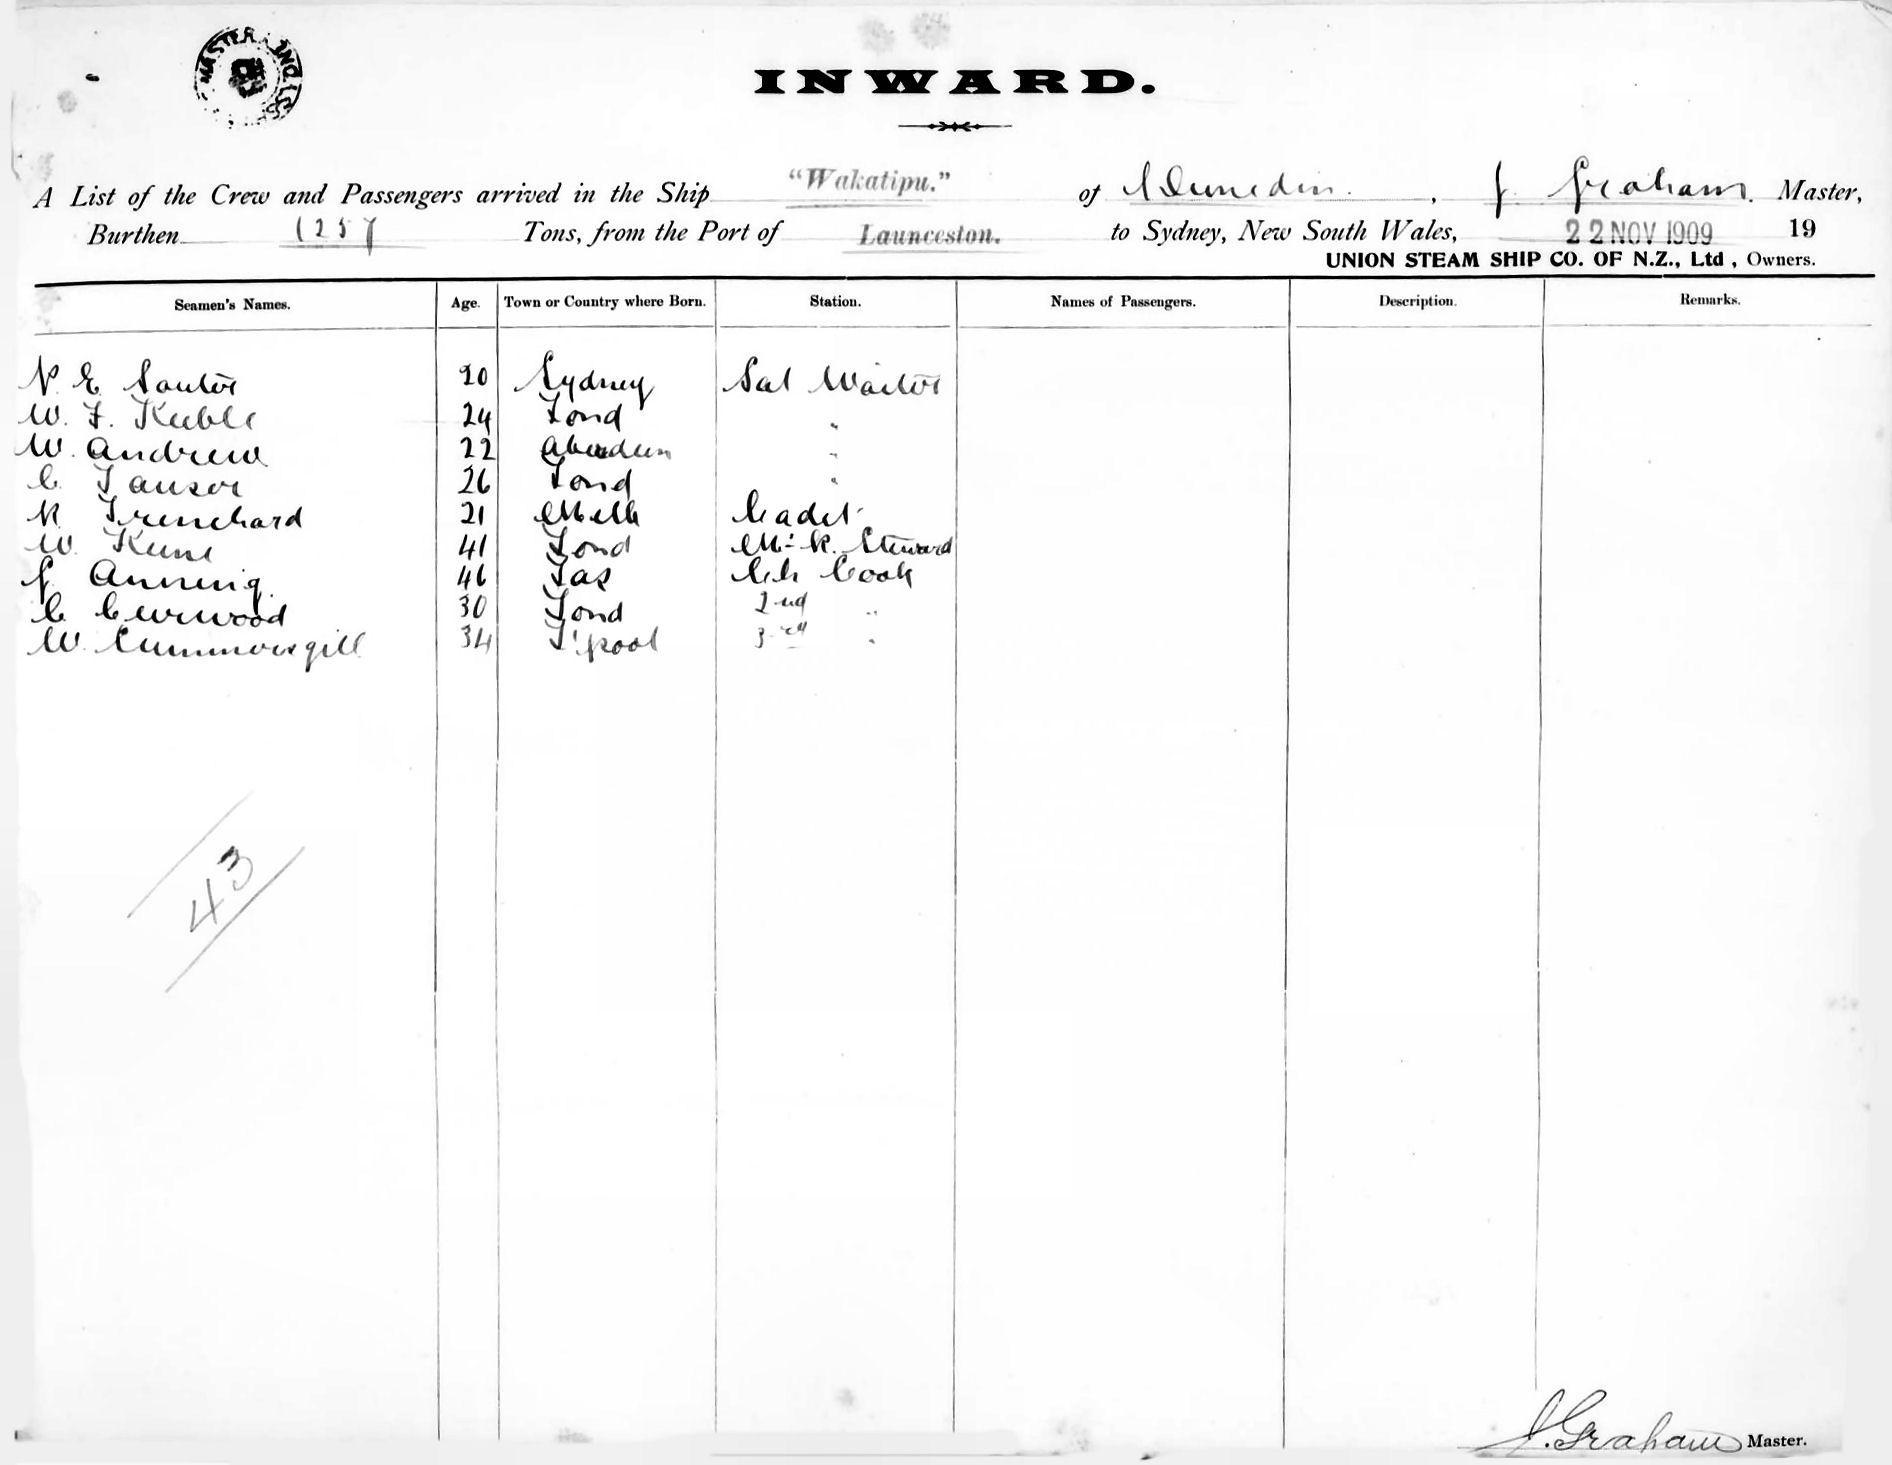 INWARD.
A List of the Crew and Passengers arrived in the Ship "Wakatipu." of Dunedin, J. Graham. Master,
Burthen 1257 Tons, from the Port of Launceston. to Sydney, New South Wales, 22 NOV 1909 19
UNION STEAM SHIP CO. OF N.Z., Ltd, Owners.
Seamen's Names. Age. Town or Country where Born. Station. Names of Passengers. Description. Remarks.
E. 20 Sydney Sal Waiter
W. F. Keeble 24 Lond "
W. Andrew 22 Aberdeen "
C. 26 Lond "
Trenchard 21 Melb Cadet
W. Keene 41 Lond Steward
J. Anning 46 Tas Ch Cook
C. Curwood 30 Lond 2nd "
W. Cummersgill 34 L'pool 3rd "
43
J. Graham Master.